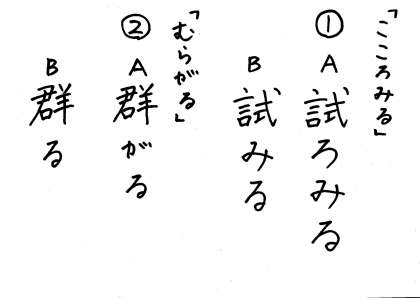 「こころみる」
① A 試ろみる
B 試みる
「むらがる」
② A 群がる
B 群る